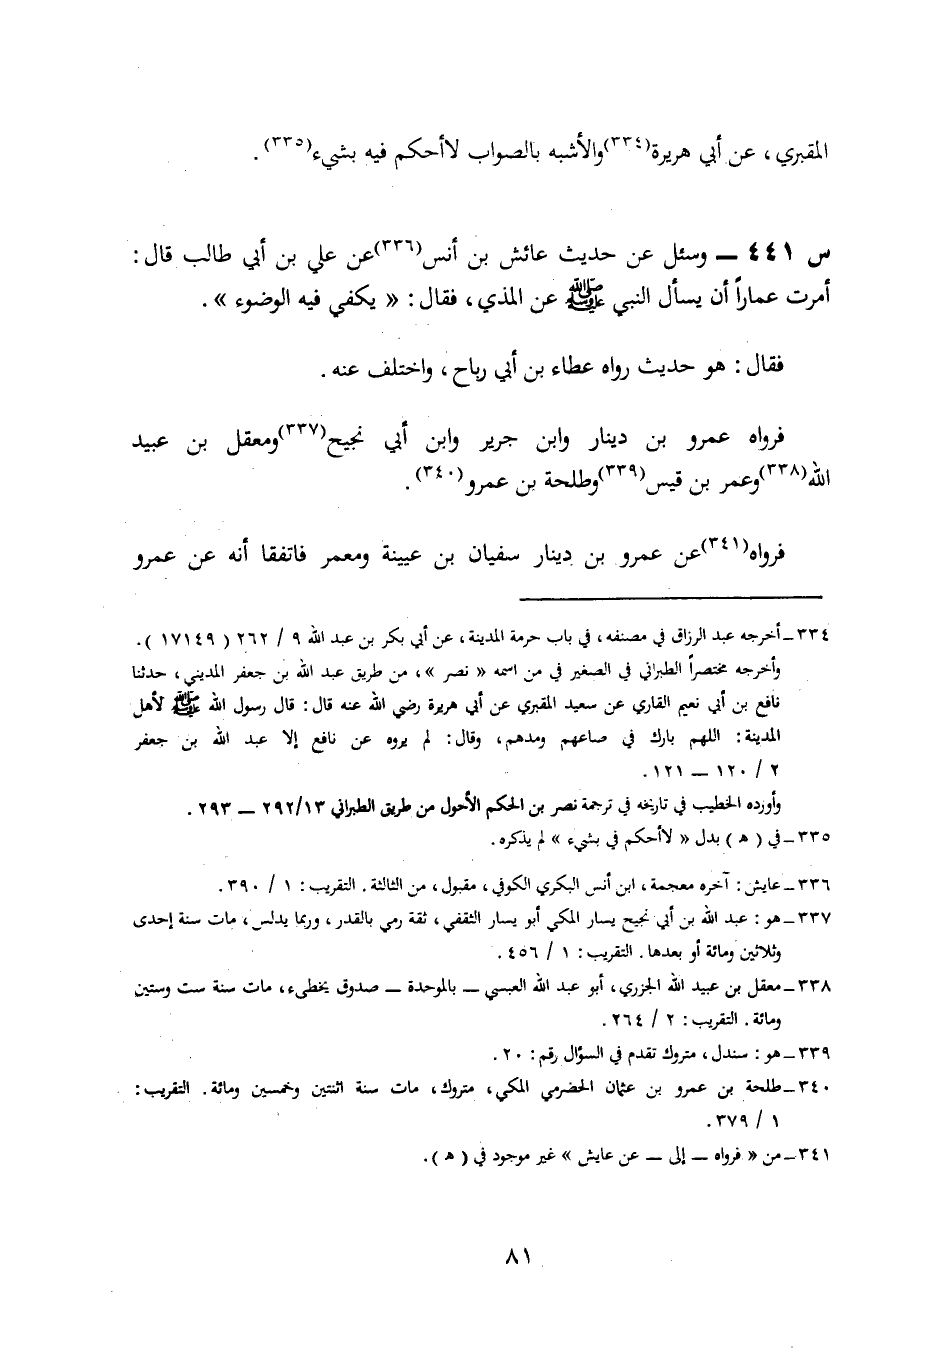 المقبري ، عن أبي هريرة(٣٣٤)والأشبه بالصواب لاأحكم فيه بشيء(٣٣٥) .
س ٤٤١ ــ وسئل عن حديث عائش بن أنس(٣٣٦)عن علي بن أبي طالب قال :
أمرت عماراً أن يسأل النبي ﷺ عن المذي ، فقال : « يكفي فيه الوضوء » .
فقال : هو حديث رواه عطاء بن أبي رباح ، واختلف عنه .
فرواه عمرو بن دينار وابن جرير وابن أبي نجيح(٣٣٧)ومعقل بن عبيد
الله(٣٣٨)وعمر بن قيس(٣٣٩)وطلحة بن عمرو(٣٤٠) .
فرواه(٣٤١)عن عمرو بن دينار سفيان بن عيينة ومعمر فاتفقا أنه عن عمرو
٣٣٤ــ أخرجه عبد الرزاق في مصنفه ، في باب حرمة المدينة ، عن أبي بكر بن عبد الله ٩ / ٢٦٢ ( ١٧١٤٩ ) .
وأخرجه مختصراً الطبراني في الصغير في من اسمه « نصر » ، من طريق عبد الله بن جعفر المديني ، حدثنا
نافع بن أبي نعيم القاري عن سعيد المقبري عن أبي هريرة رضي الله عنه قال : قال رسول الله ﷺ لأهل
المدينة : اللهم بارك في صاعهم ومدهم ، وقال : لم يروه عن نافع إلا عبد الله بن جعفر
٢ / ١٢٠ ــ ١٢١ .
وأورده الخطيب في تاريخه في ترجمة نصر بن الحكم الأحول من طريق الطبراني ٢٩٢/١٣ ــ ٢٩٣ .
٣٣٥ــ في ( هـ ) بدل « لاأحكم في بشيء » لم يذكره .
٣٣٦ــ عايش : آخره معجمة ، ابن أنس البكري الكوفي ، مقبول ، من الثالثة . التقريب : ١ / ٣٩٠ .
٣٣٧ــ هو : عبد الله بن أبي نجيح يسار المكي أبو يسار الثقفي ، ثقة رمي بالقدر ، وربما يدلس ، مات سنة إحدى
وثلاثين ومائة أو بعدها . التقريب : ١ / ٤٥٦ .
٣٣٨ــ معقل بن عبيد الله الجزري ، أبو عبد الله العبسي ــ بالموحدة ــ صدوق يخطىء ، مات سنة ست وستين
ومائة . التقريب : ٢ / ٢٦٤ .
٣٣٩ــ هو : سندل ، متروك تقدم في السؤال رقم : ٢٠ .
٣٤٠ــ طلحة بن عمرو بن عثمان الحضرمي المكي ، متروك ، مات سنة اثنتين وخمسين ومائة . التقريب :
١ / ٣٧٩ .
٣٤١ــ من « فرواه ــ إلى ــ عن عايش » غير موجود في ( هـ ) .
٨١